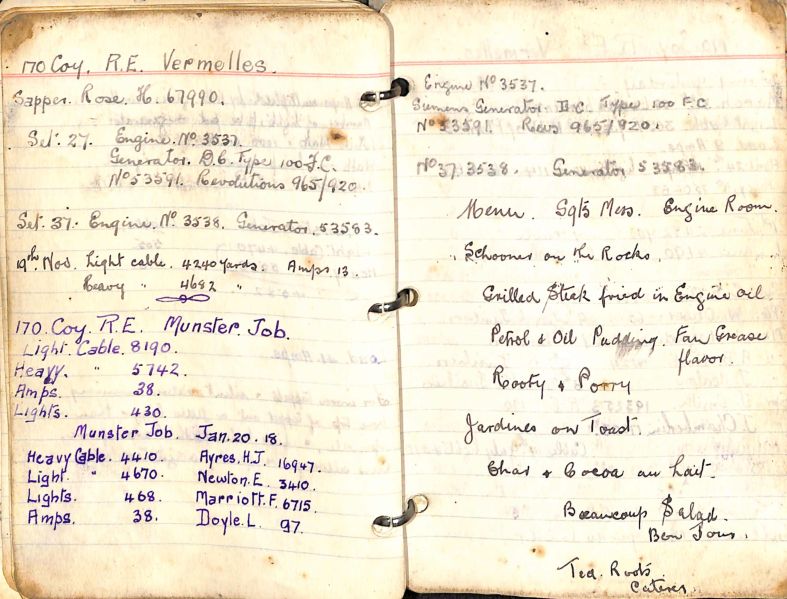 170 Coy. R.E. Vermelles.
Sapper. Rose. H. 67990.
Set. 27. Engine. No. 3537.
Generator. D.C. Type 100 F.C.
No 53591. Revolutions 965/920.
Set. 37. Engine. No. 3538. Generator. 53583.
19th Nov. Light cable. 4240 yards Amps 13.
Heavy " 4682 "
170. Coy. R.E. Munster. Job.
Light. Cable. 8190.
Heavy. " 5742.
Amps. 38.
Lights. 430.
Munster Job. Jan. 20. 18.
Heavy Cable. 4410. Ayres. H.J. 16947.
Light " 4670. Newton. E. 3410.
Lights. 468. Marriott. F. 6715.
Amps. 38. Doyle. L. 97.
Engine No 3537.
Siemens Generator. D.C. Type 100 F.C.
No 53591. Revs 965/920.
No 37. 3538. Generator 53583.
Menu. Sgts Mess. Engine Room.
Schooner on the Rocks.
Grilled Steak fried in Engine oil.
Petrol & Oil Pudding Fan Grease
flavor.
Rooty & Porry
Jardines on Toast.
Char & Cocoa au Lait.
Beaucoup Salad.
Bon Jour.
Ted. Roots
Caterer.